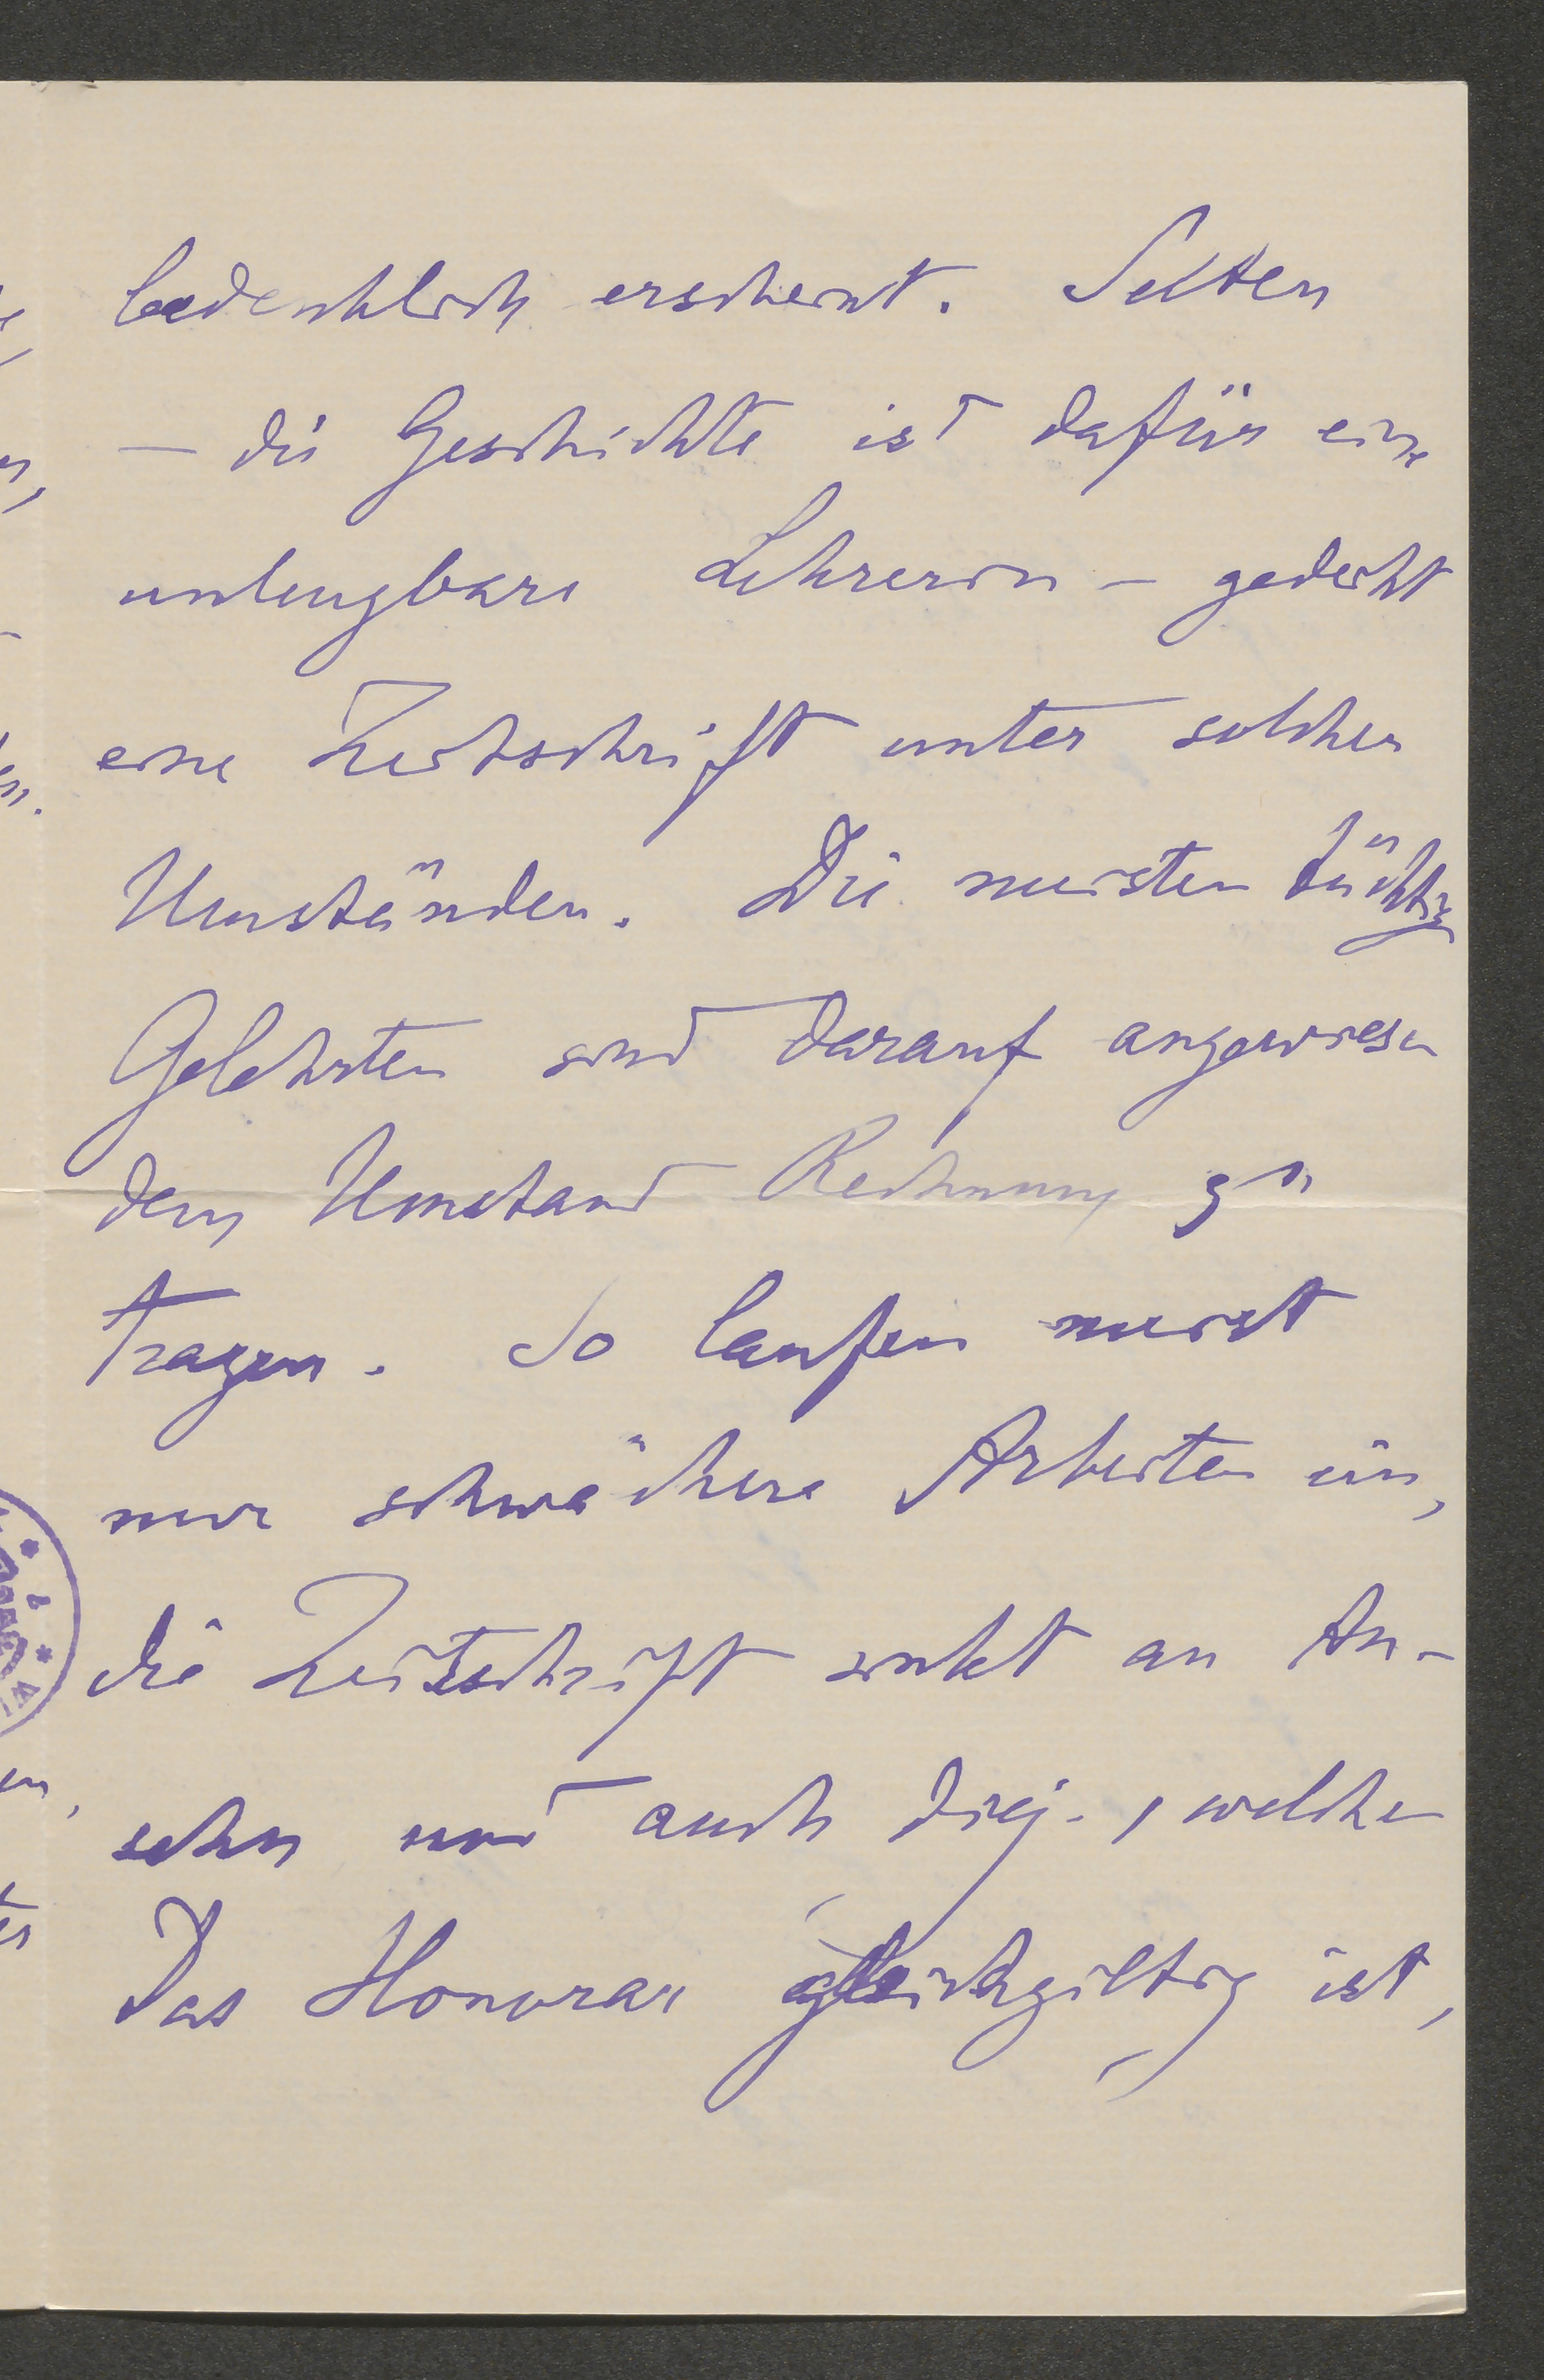 bedenklich erscheint. Selten
– die Geschichte ist dafür eine
unleugbare Lehrerin – gedeiht
eine Zeitschrift unter solchen
Umständen. Die meisten tüchtigen
Gelehrten sind darauf angewiesen
dem Umstand Rechnung zu
tragen. So laufen meist
nur schwächere Arbeiten ein,
die Zeitschrift sinkt an An-
sehn und auch diej., welchen
das Honorar gleichgiltig ist,